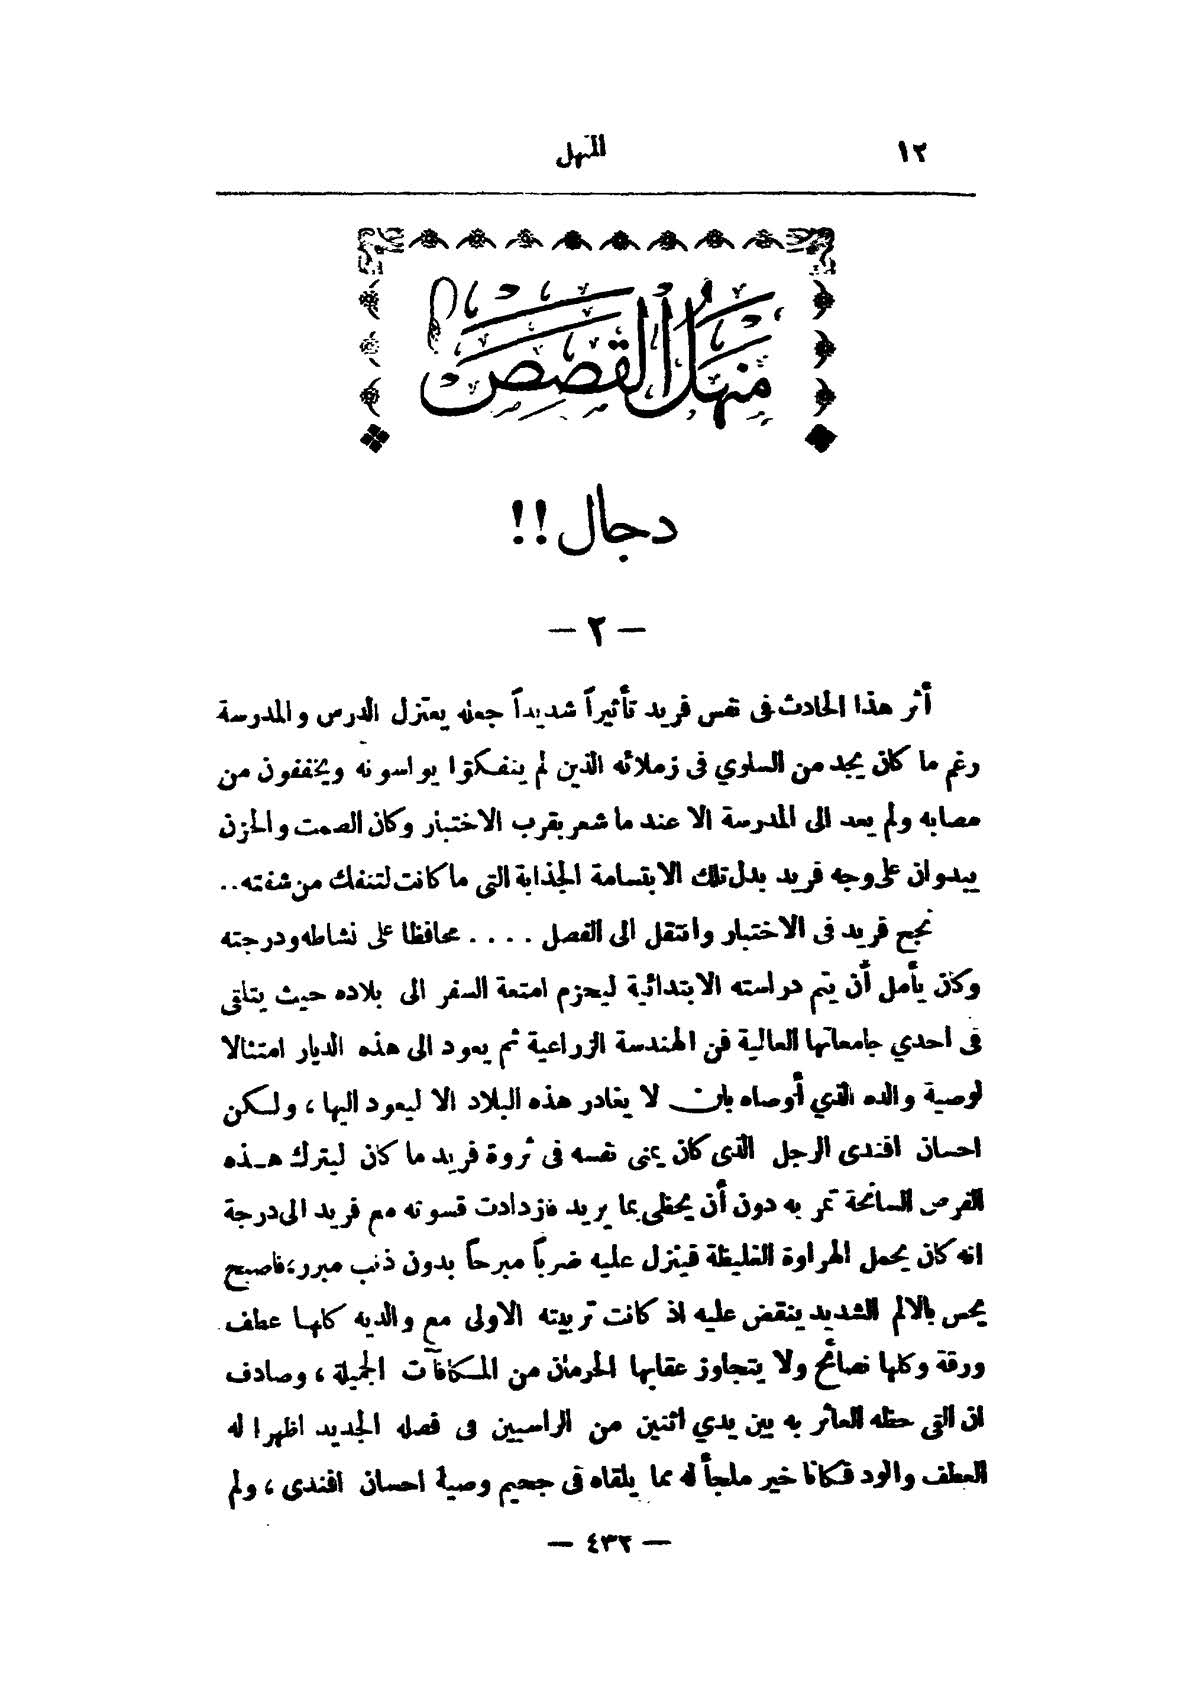 ١٢
المنهل
منهل القصص
دجال !!
— ٢ —
أثر هذا الحادث فى نفس فريد تأثيراً شديداً جعله يعتزل الدرس والمدرسة
رغم ما كان يجد من السلوي فى زملائه الذين لم ينفكوا يواسونه ويخففون من
مصابه ولم يعد الى المدرسة الا عند ما شعر بقرب الاختبار وكان الصمت والحزن
يبدوان على وجه فريد بدل تلك الابتسامة الجذابة التى ما كانت لتنفك من شفته..
نجح فريد فى الاختبار وانتقل الى الفصل .... محافظا على نشاطه ودرجته
وكان يأمل أن يتم دراسته الابتدائية ليحزم امتعة السفر الى بلاده حيث يتلقى
فى احدي جامعاتها العالية فن الهندسة الزراعية ثم يعود الى هذه الديار امتثالا
لوصية والده الذي أوصاه بان لا يغادر هذه البلاد الا ليعود اليها ، ولكن
احسان افندى الرجل الذى كان يمنى نفسه فى ثروة فريد ما كان ليترك هذه
الفرص السانحة تمر به دون أن يحظى بما يريد فازدادت قسوته مع فريد الى درجة
انه كان يحمل الهراوة الغليظة فينزل عليه ضرباً مبرحاً بدون ذنب مبرر، فاصبح
يحس بالالم الشديد ينقض عليه اذ كانت تربيته الاولى مع والديه كلها عطف
ورقة وكلها نصائح ولا يتجاوز عقابها الحرمان من المكافآت الجميلة ، وصادف
ان القى حظه العاثر به بين يدي اثنين من الراسبين فى فصله الجديد اظهرا له
العطف والود فكانا خير ملجأ له مما يلقاه فى جحيم وصية احسان افندى ، ولم
— ٤٣٢ —